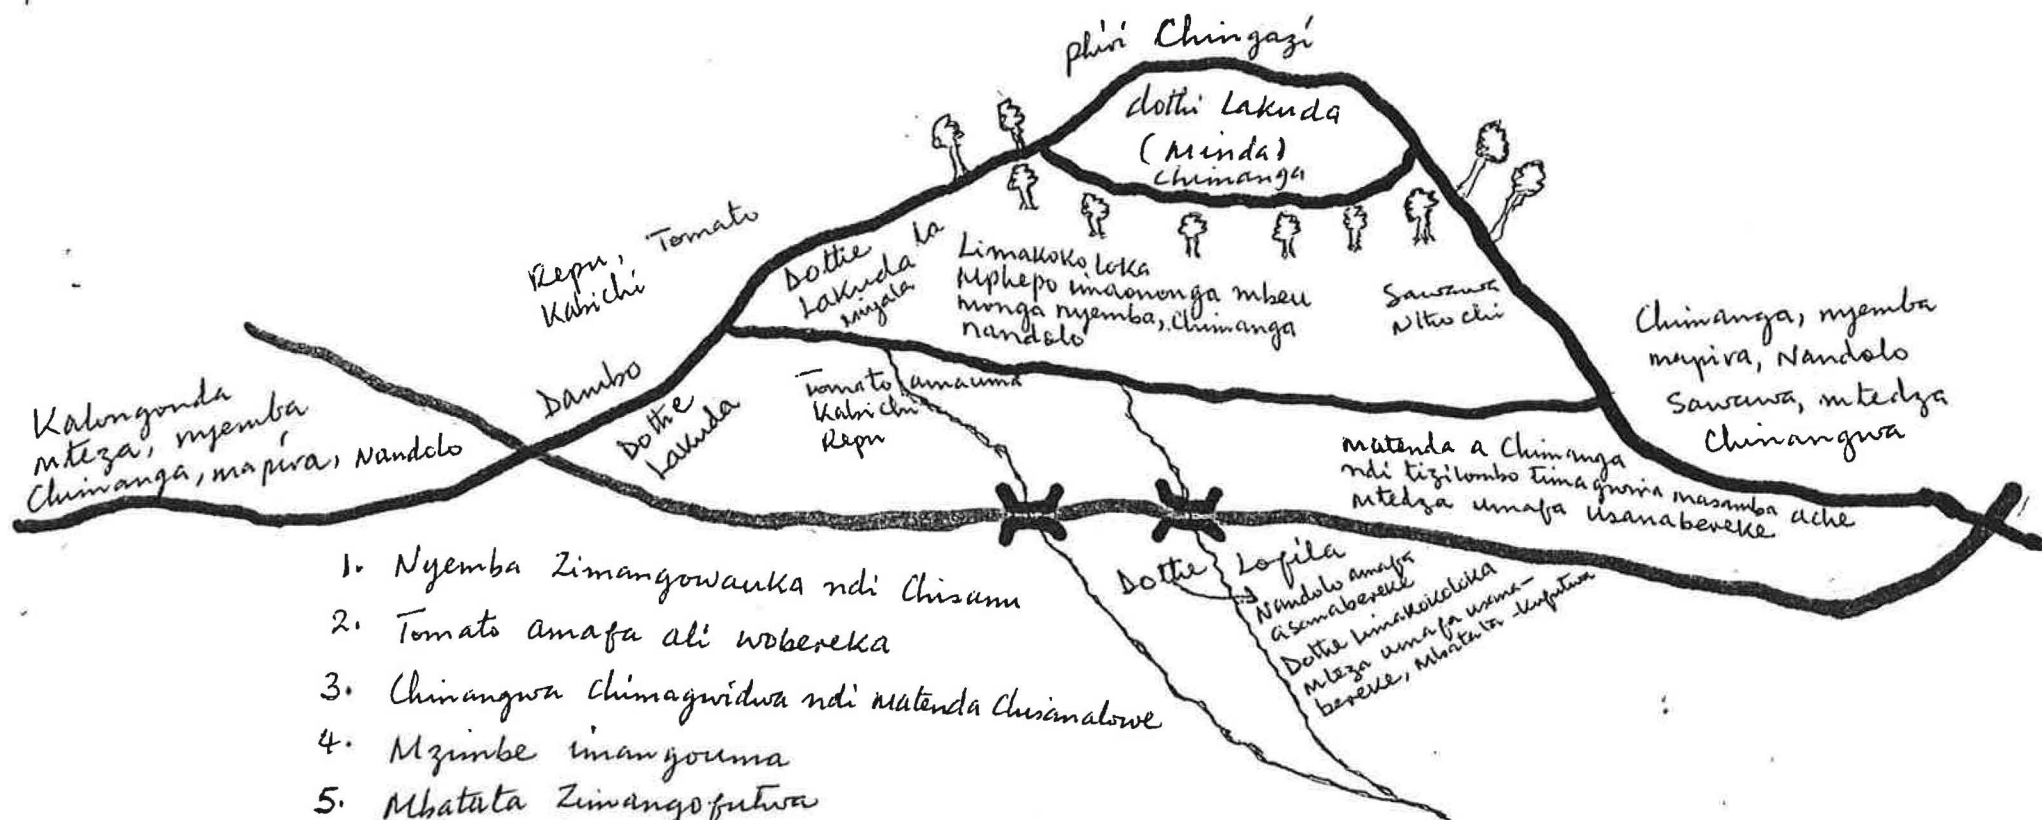 Phiri Chingazi
dothi Lakuda
(Minda)
Chimanga
Repu, Tomato
Kabichi
Dothe la
Lakuda
miyala
Limakokoloka
Mphepo imaononga mbeu
monga nyemba, Chimanga
nandolo
Sawawa
Nthochi
Chimanga, nyemba
mapira, Nandolo
Sawawa, mtedza
Chinangwa
Kalongonda
mteza, nyemba
Chimanga, mapira, Nandolo
Dambo
Dothe
Lakuda
Tomato amauma
Kabichi
Repu
Matenda a Chimanga
ndi tizilombo timagwira masamba ache
mtedza umafa usanabereke
Dothe Lofila
Nandolo amafa
asanabereke
Dothe limakokoloka
mteza umafa usana-
bereke, Mbatata -kufutwa
1. Nyemba Zimangowauka ndi Chisanu
2. Tomato amafa ali wobereka
3. Chinangwa Chimagwidwa ndi Matenda Chisanalowe
4. Mzimbe imangouma
5. Mbatata Zimangofutwa